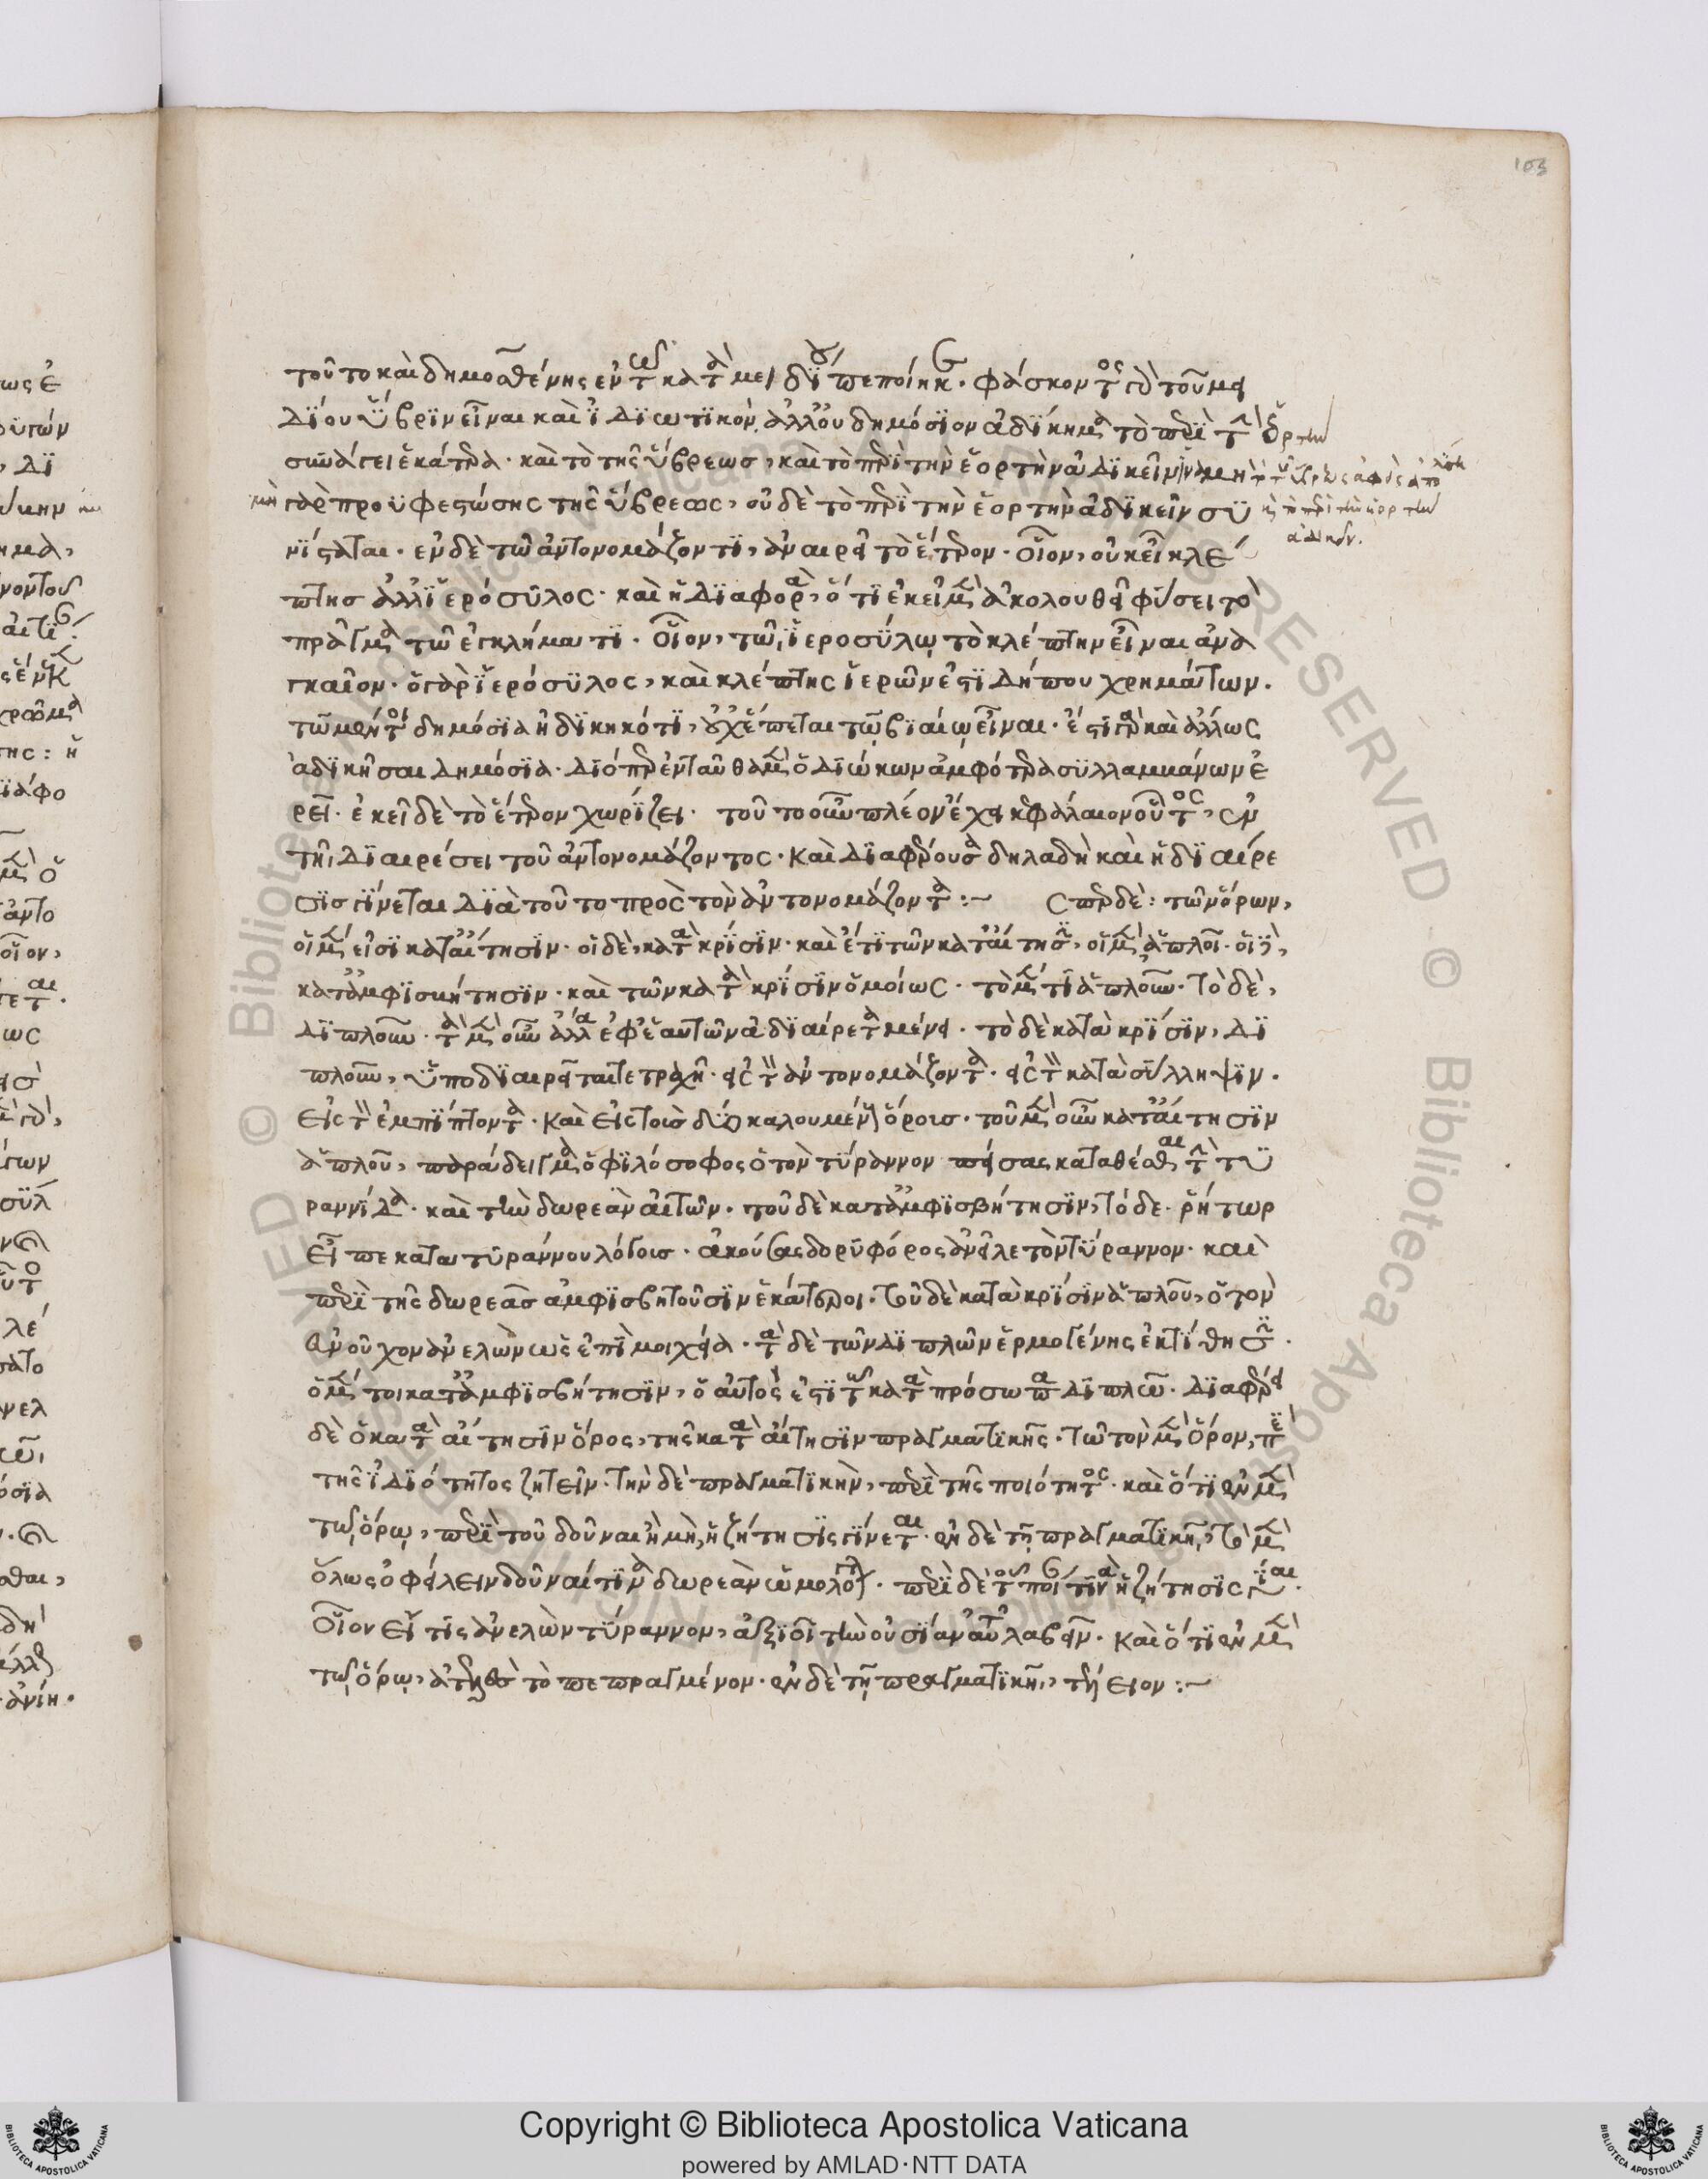 103
τοῦτο καὶ δημοσθένης ἐν τῶ κατὰ μειδίου πεποίηκεν· φάσκοντος τοῦ
δίου ὕβριν εἶναι καὶ ἰδιωτικὸν ἀλλ' οὐ δημόσιον ἀδίκημα τὸ περὶ τὴν ἑορτὴν
συνάγει ἑκάτερα· καὶ τὸ τῆς ὕβρεως, καὶ τὸ περὶ τὴν ἑορτὴν ἀδικεῖν
μὴ γὰρ προϋφεστώσης τῆς ὕβρεως, οὐδὲ τὸ περὶ τὴν ἑορτὴν ἀδικεῖν συ
νίσταται· ἐν δὲ τῶ ἀντονομάζοντι, ἀναιρεῖ τὸ ἕτερον· οἷον, οὐκ εἶ κλέ
πτης ἀλλ' ἱερόσυλος· καὶ ἡ διαφορὰ, ὅτι ἐκεῖ μὲν ἀκολουθεῖ φύσει τὸ
πρᾶγμα τῶ ἐγκλήματι· οἷον, τῶ ἱεροσύλω τὸ κλέπτην εἶναι ἀνα
γκαῖον· ὁ γὰρ ἱερόσυλος, καὶ κλέπτης ἱερῶν ἐστὶ δήπου χρημάτων·
τῶ μέντοι δημόσια ἠδικηκότι, οὐχ ἕπεται τῶ βιαίω εἶναι· ἔστι γὰρ καὶ ἄλλως
ἀδικῆσαι δημόσια· διόπερ ἐνταῦθα μὲν ὁ διώκων ἀμφότερα συλλαμβάνων ἐ
ρεῖ· ἐκεῖ δὲ τὸ ἕτερον χωρίζει· τοῦτο οὖν πλέον ἔχει κεφάλαιον οὗτος, ἐν
τῆ διαιρέσει τοῦ ἀντονομάζοντος· καὶ διαφέρουσα δηλαδὴ καὶ ἡ διαίρε
σις γίνεται διὰ τοῦτο πρὸς τὸν ἀντονομάζοντα :~ τῶν ὅρων,
οἱ μὲν εἰσὶ κατ' αἴτησιν· οἱ δὲ, κατὰ κρίσιν· καὶ ἔτι τῶν κατ' αἴτησιν, οἱ μὲν ἁπλοῖ· οἱ δὲ,
κατ' ἀμφισβήτησιν· καὶ τῶν κατὰ κρίσιν ὁμοίως· τὸ μέν τι ἁπλοῦν· τὸ δὲ,
διπλοῦν· τὰ μὲν οὖν ἄλλα ἐφ' ἑαυτῶν ἀδιαίρετα μένει· τὸ δὲ κατὰ κρίσιν, δι
πλοῦν, ὑποδιαιρεῖται τετραχῆ· εἰς τὸν ἀντονομάζοντα· εἰς τὸν κατὰ σύλληψιν·
εἰς τὸν ἐμπίπτοντα· καὶ εἰς τοὺς δύο καλουμένους ὅρους· τοῦ μὲν οὖν κατ' αἴτησιν
ἁπλοῦ, παράδειγμα ὁ φιλόσοφος ὁ τὸν τύραννον πείσας καταθέσθαι τὴν τυ
ραννίδα· καὶ τὴν δωρεὰν αἰτῶν· τοῦ δὲ κατ' ἀμφισβήτησιν, τόδε· ῥήτωρ
εἶπε κατὰ τυράννου λόγους· ἀκούσας δορυφόρος ἀνεῖλε τὸν τύραννον· καὶ
περὶ τῆς δωρεᾶς ἀμφισβητοῦσιν ἑκάτεροι· τοῦ δὲ κατὰ κρίσιν ἁπλοῦ, ὁ τὸν
εὐνοῦχον ἀνελὼν ὡς ἐπὶ μοιχεία· τὰ δὲ τῶν διπλῶν ἑρμογένης ἐκτίθησιν·
ὁ μέντοι κατ' ἀμφισβήτησιν, ὁ αὐτὸς ἐστὶ τῶ κατὰ πρόσωπα διπλῶ· διαφέρει
δὲ ὁ κατὰ αἴτησιν ὅρος, τῆς κατὰ αἴτησιν πραγματικῆς· τῶ τὸν μὲν ὅρον, περὶ
τῆς ἰδιότητος ζητεῖν· τὴν δὲ πραγματικὴν, περὶ τῆς ποιότητος· καὶ ὅτι ἐν μὲν
τῶ ὅρω, περὶ τοῦ δοῦναι ἢ μὴ, ἡ ζήτησις γίνεται· ἐν δὲ τῆ πραγματικῆ, τὸ μὲν
ὅλως ὀφείλειν δοῦναί τινα δωρεὰν ὡμολόγηται· περὶ δὲ τοῦ ποίαν τινὰ ἡ ζήτησις γίνεται·
οἷον εἴ τις ἀνελὼν τύραννον, ἀξιοῖ τὴν οὐσίαν αὐτοῦ λαβεῖν· καὶ ὅτι ἐν μὲν
τῶ ὅρω, ἀτελὲς τὸ πεπραγμένον· ἐν δὲ τῆ πραγματικῆ, τέλειον :~
Copyright © Biblioteca Apostolica Vaticana
powered by AMLAD·NTT DATA
BIBLIOTECA APOSTOLICA VATICANA